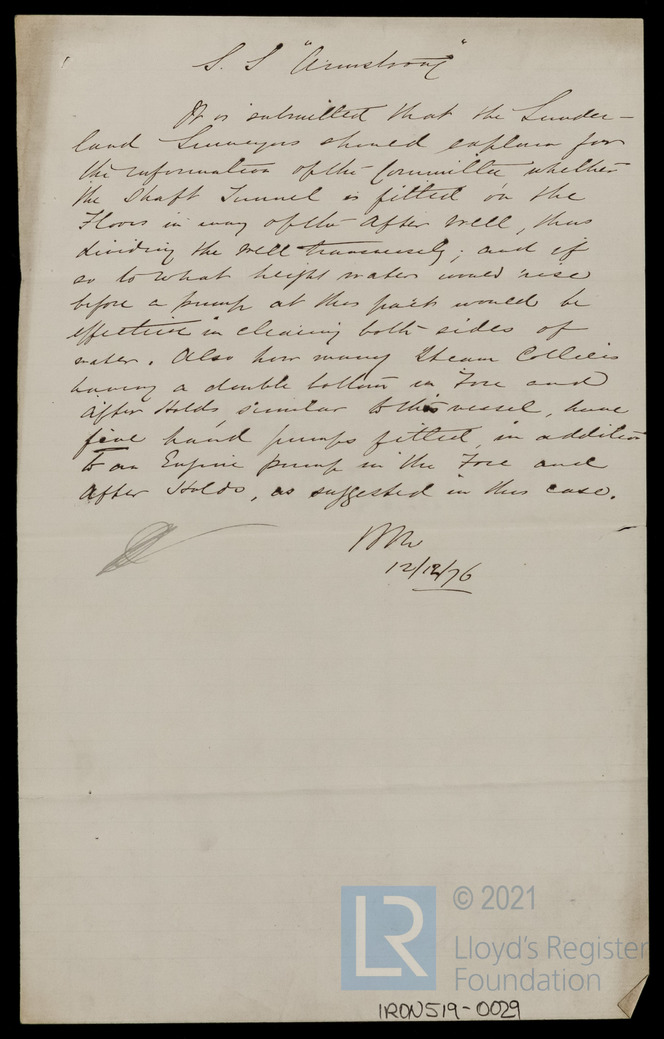 S. S "Armstrong"
It is submitted that the Sunder-
land Surveyors should explain for
the information of the Committee whether
the Shaft Tunnel is fitted on the
Floors in way of the After Well, thus
dividing the Well transversely; and if
so to what height water would rise
before a pump at this part would be
effective in clearing both sides of
water. Also how many Steam Colliers
having a double bottom in Fore and
After Holds similar to this vessel, have
five hand pumps fitted, in addition
to an Engine pump in the Fore and
After Holds, as suggested in this case.
12/12/76
LR
© 2021
Lloyd's Register
Foundation
IRON519-0029